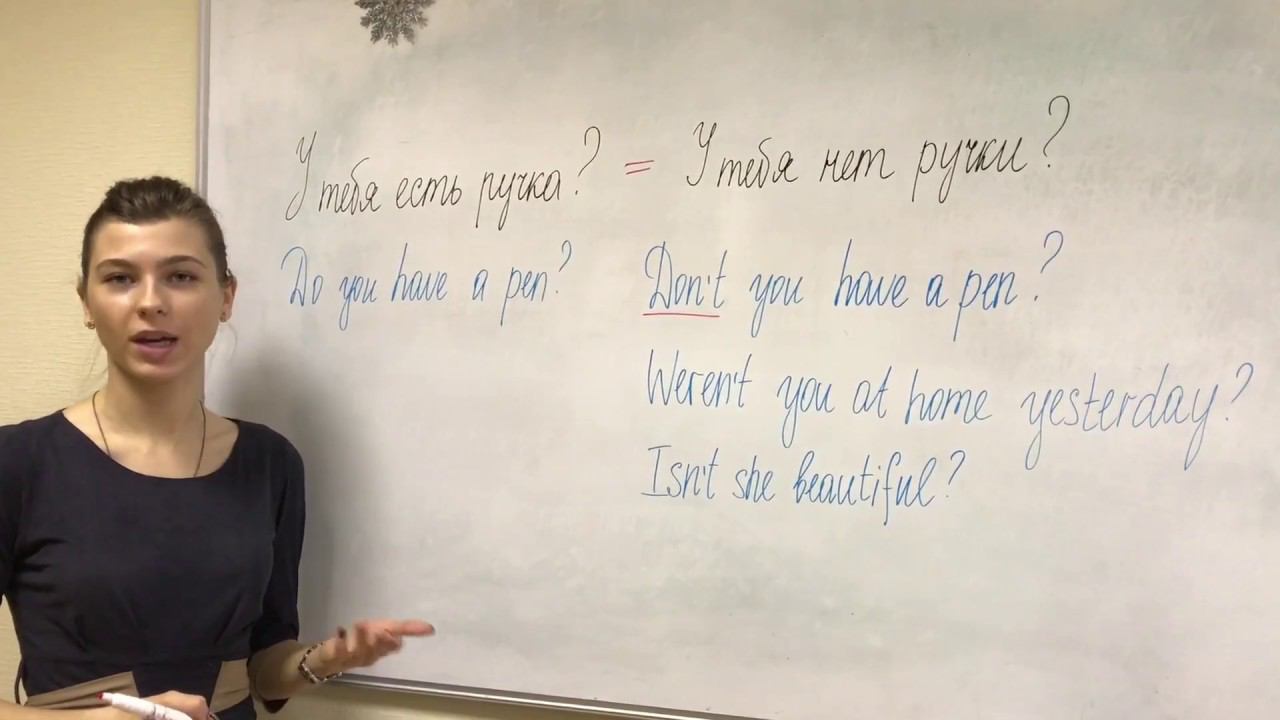 У тебя есть ручка? = У тебя нет ручки?
Do you have a pen? Don't you have a pen?
Weren't you at home yesterday?
Isn't she beautiful?